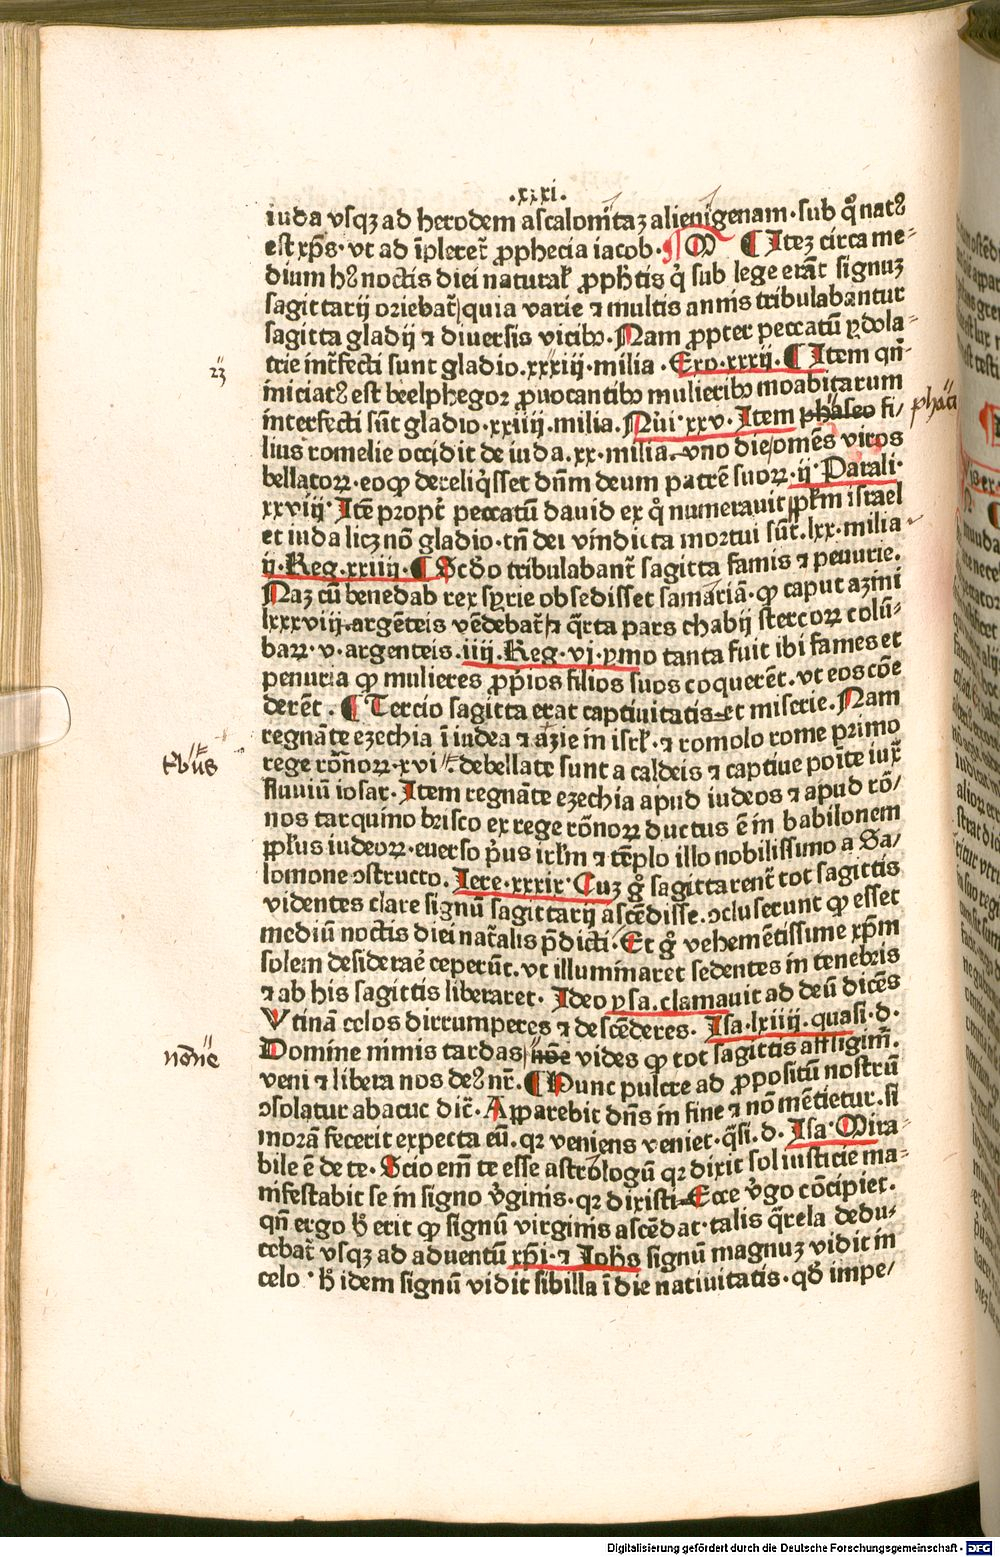 .xxxi.
iuda vsqꝫ ad herodem ascalonitaꝫ alienigenam·sub q̊ natꝰ
est xp̄s·vt ad īpleret̄ ꝓphecia iacob· ¶ M ¶ Iteꝫ circa me⸗
dium hꝰ noctis diei natural̕ ꝓphētis q̇ sub lege erāt signuꝫ
sagittarij oriebat̄ quia varie ⁊ multis annis tribulabantur
sagitta gladij ⁊ diuersis vicibꝰ. Nam ꝓpter peccatū ydola⸗
trie int̄fecti sunt gladio.xxxiij·milia. Exo.xxxij.¶ Item qn̄⸗
iniciatꝰ est beelphegoꝛ ꝓuocantibꝰ mulieribꝰ moabitarum
interfecti sūt gladio·xxiiij·milia. Nūi·xxv·Item phaseo fi/
lius romelie occidit de iuda.xx·milia vno die omēs viros
bellatoꝝ·eoꝙ dereliq̇sset dn̄m deum patrē suoꝝ·ij·Parali·
xxviij·Itē propt̄ peccatū dauid ex q̊ numerauit pp̄lm israel
et iuda licꝫ nō gladio·tn̄ dei vindicta mortui sūt.lxx·milia
ij·Reg.xxiiij·¶ Scd̄o tribulabant̄ sagitta famis ⁊ penurie.
Naꝫ cū benedab rex syrie obsedisset samariā·ꝙ caput azini
lxxxviij·argēteis vēdebat̄ ⁊ q̄rta pars chabij stercoꝝ colū⸗
baꝝ·v·argenteis.iiij.Reg·vj·ymo tanta fuit ibi fames et
penuria ꝙ mulieres ꝓp̄ios filios suos coquerēt·vt eos cōe
derēt.¶ Tercio sagitta erat captiuitatis et miserie.Nam
regnāte ezechia ī iudea ⁊ azie in isrl̄·⁊ romolo rome primo
rege rōnoꝝ·xvi debellate sunt a caldeis ⁊ captiue poīte iux̄
fluuiū iosar.Item regnāte ezechia apud iudeos ⁊ apud rō/
nos tarquino brisco ex rege rōnoꝝ ductus ē in babilonem
pp̄lus iudeoꝝ·euerso p̄us irl̄m ⁊ tēplo illo nobilissimo a Sa/
lomone ↄstructo. Iere.xxxix·Cuꝫ g̊ sagittarent̄ tot sagittis
videntes clare signū sagittarij ascēdisse.ↄcluserunt ꝙ esset
mediū noctis diei nat̄alis p̄dicti·Et g̊ vehemētissime xp̄m
solem desiderae̓ ceperūt.vt illuminaret sedentes in tenebris
⁊ ab his sagittis liberaret·Ideo ysa.clamauit ad deū dicēs
Vtinā celos dirrumperes ⁊ descēderes·Isa·lxiiij.quasi·d·
Domine nimis tardas nōe vides ꝙ tot sagittis affligim̄.
veni ⁊ libera nos deꝰ nr̄.¶ Nunc pulcre ad ꝓpositū nostrū
ↄsolatur abacuc dic̄·Apparebit dn̄s in fine ⁊ nō mētietur.si
morā fecerit expecta eū.qꝛ veniens veniet·q̄si.d·Isa·Mira⸗
bile ē de te·Scio em̄ te esse astrologū qꝛ dixit sol iusticie ma⸗
nifestabit se in signo v̓ginis·qꝛ dixisti Ecce v̓go cōcipiet.
qn̄ ergo h̄ erit ꝙ signū virginis ascēdat·talis q̄rela dedu/
cebat̄ vsqꝫ ad aduentū xp̄i·⁊ Ioh̄s signū magnuꝫ vidit in
celo·h̄ idem signū vidit sibilla ī die natiuitatis·qd̄ impe/
23
phaci
nonne
Digitalisierung gefördert durch die Deutsche Forschungsgemeinschaft - DFG